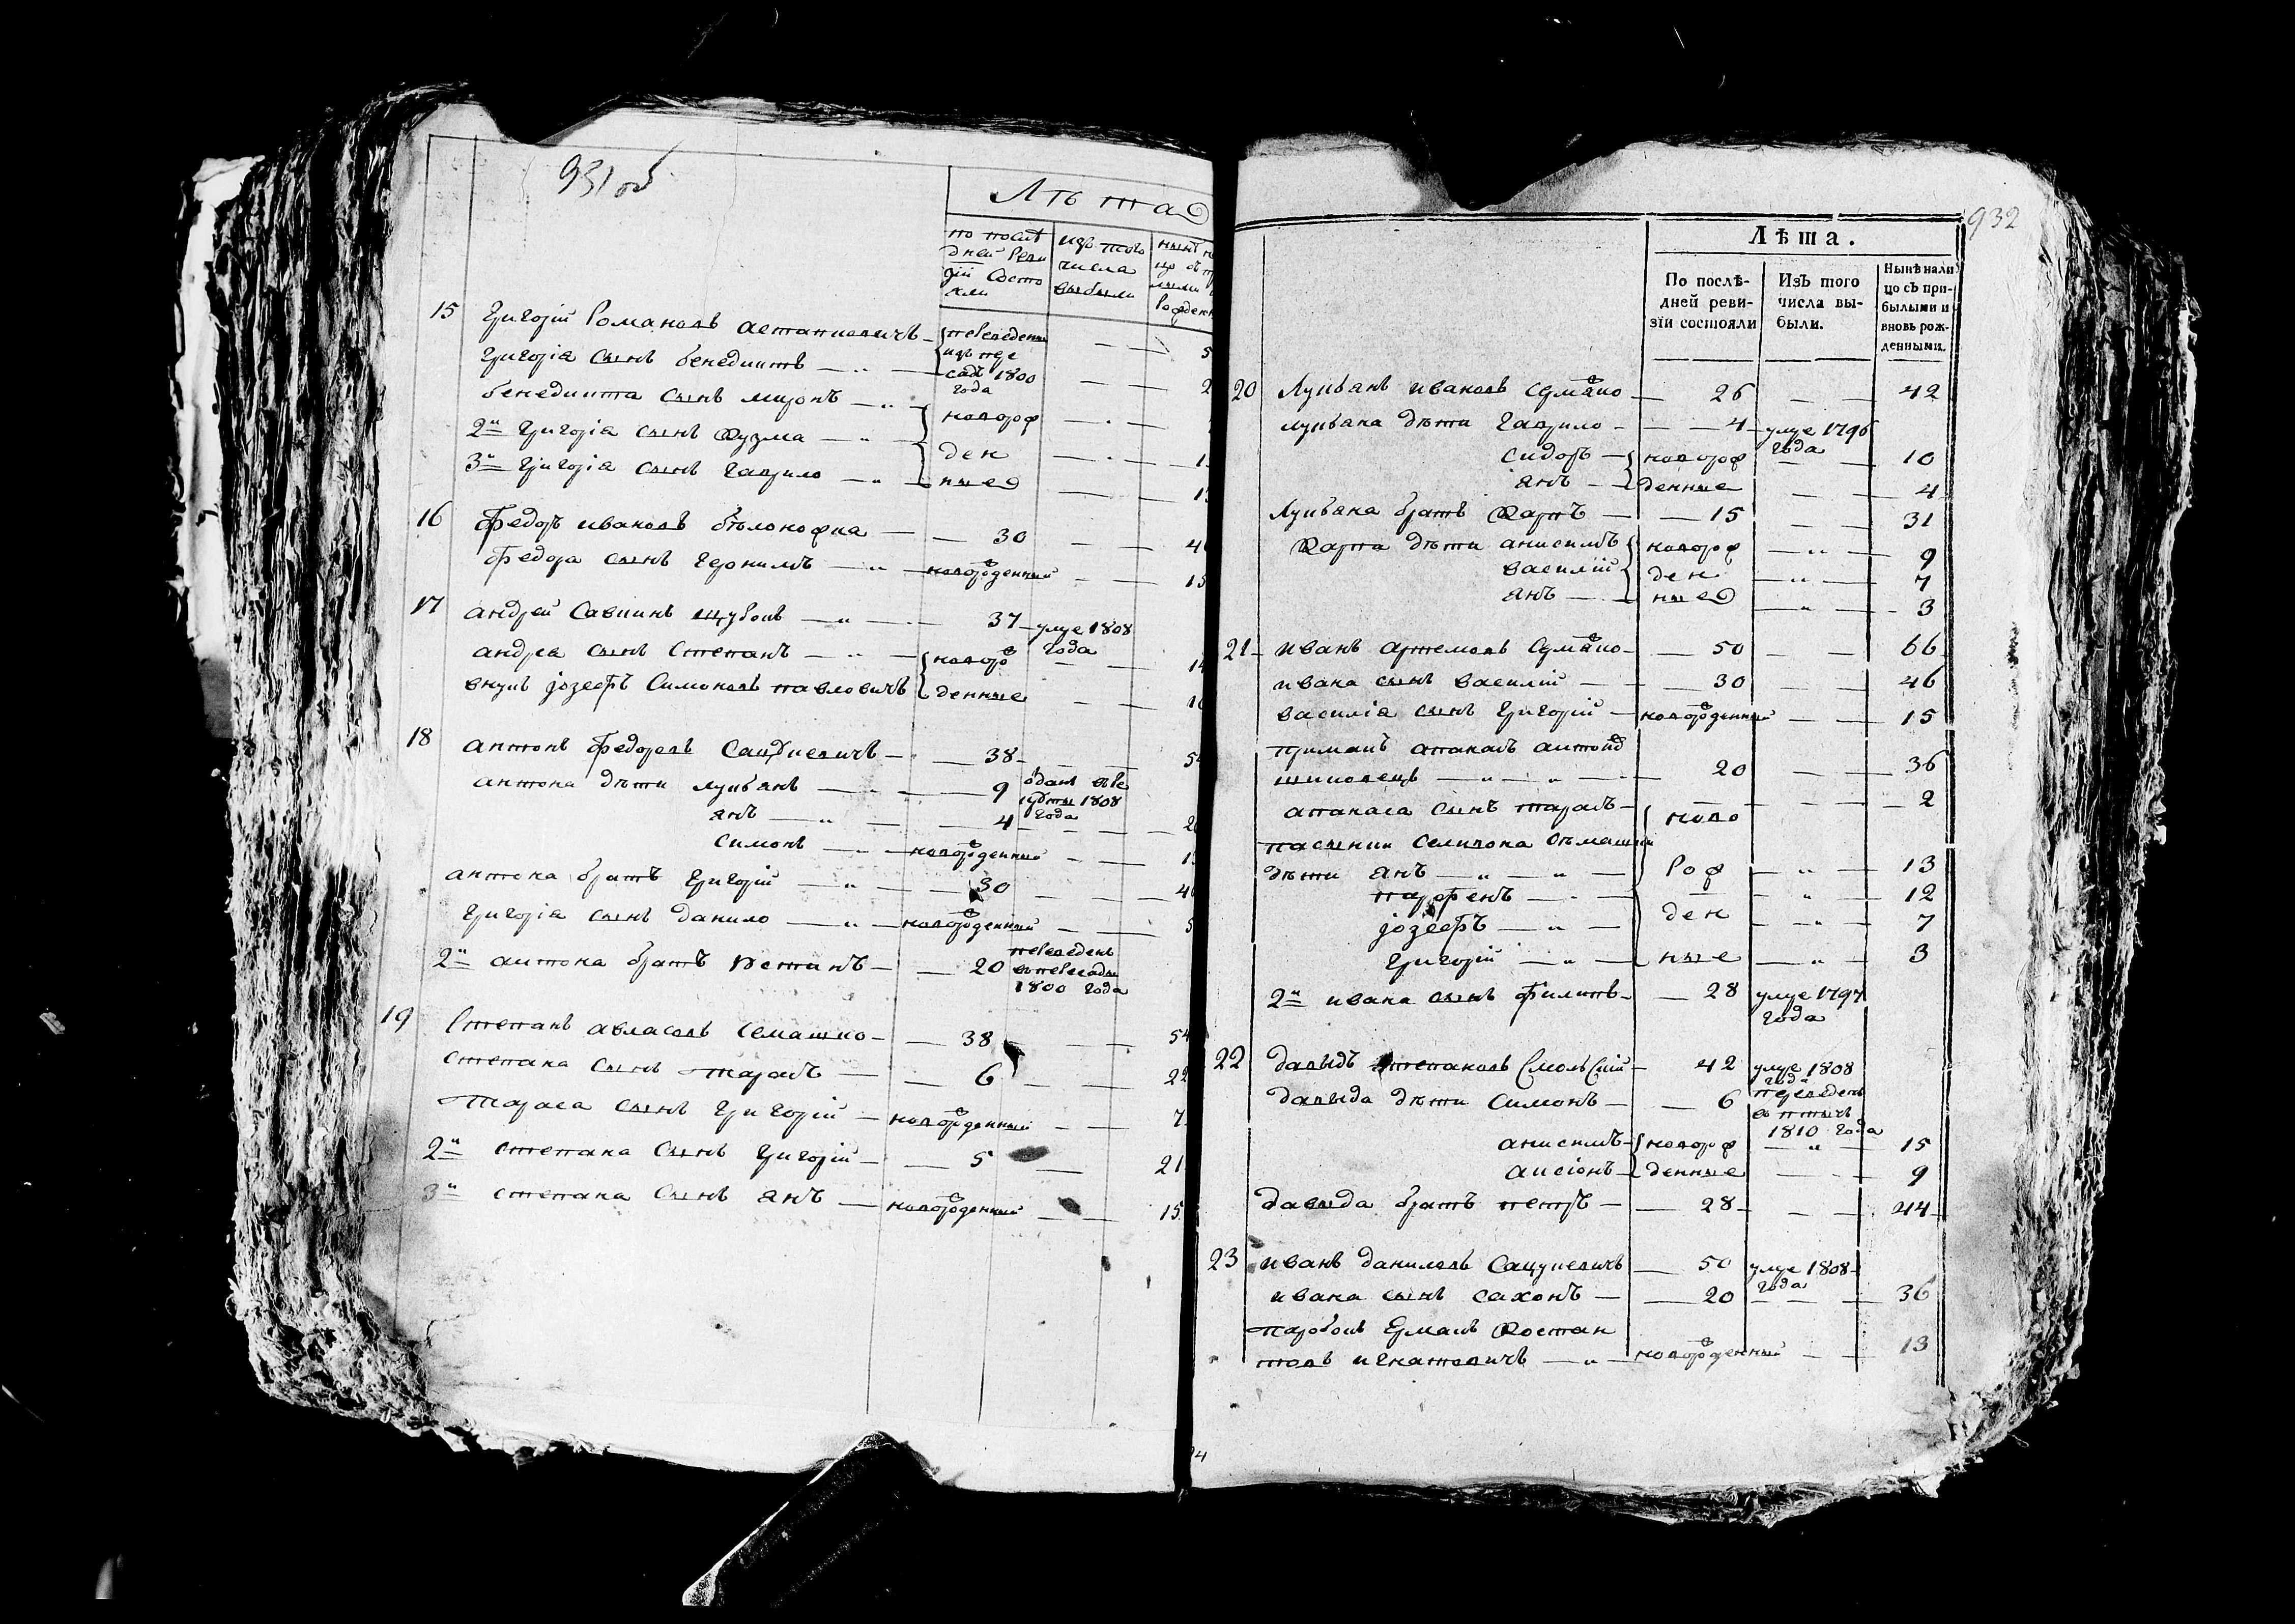 931 об
Лѣта
по послѣ
дней реви
зіи состо
яли
изъ того
числа
выбыли
15 Григорій Романовъ Астапковичъ — переведены 5
Григорія сынъ Бенедиктъ — изъ пере 2
садъ 1800
года
Бенедикта сынъ Миронъ — новорож
2й Григорія сынъ Кузма — ден 1
3й Григорія сынъ Гаврило — ные 1
16 Федоръ Ивановъ Бѣлоножка — 30 4
Федора сынъ Геронимъ — новорожденный 15
17 Андрей Савкинъ — 37 — умре 1808
года
Андрея сынъ Степанъ — новоро 1
внукъ Іозефъ Симоновъ Павловичъ — денные 1
18 Антонъ Федоровъ — 38 — 5
Антона дѣти Лукьянъ — 9 отданъ въ ре
круты 1808
года
Янъ — 4 — 2
Симонъ — новорожденный 1
Антона братъ Григорій — 30 — 4
Григорія сынъ Данило — новорожденный 5
2й Антона братъ Устинъ — 20 переведенъ
въ пересады
1800 года
19 Степанъ Авласовъ Семашко — 38 — 54
Степана сынъ Тарасъ — 6 — 22
Тараса сынъ Григорій — новорожденный — 7
2й Степана сынъ Григорій — 5 — 21
3й Степана сынъ Янъ — новорожденный — 15
932
Лѣта.
По послѣ-
дней реви-
зіи состояли
Изъ того
числа вы-
были.
Нынѣ нали
цо съ при-
былыми и
вновь рож-
денными.
20 Лукьянъ Ивановъ Семашко — 26 — 42
Лукьяна дѣти Гаврило — 4 — умре 1796
года
Сидоръ — новорож — 10
Янъ — денные — 4
Лукьяна братъ Карпъ — 15 — 31
Карпа дѣти Анисимъ — новорож — 9
Василій — ден — 7
Янъ — ные — 3
21 Иванъ Артемовъ Семашко — 50 — 66
Ивана сынъ Василій — 30 — 46
Василія сынъ Григорій — новорожденный — 15
примакъ Апанасъ
— 20 — 36
Апанаса сынъ Тарасъ — ново — 2
пасынки Семашки
дѣти Янъ — рож — 13
Парфенъ — 12
Іозефъ — ден — 7
Григорій — ные — 3
2й Ивана сынъ Филипъ — 28 умре 1797
года
22 Давыдъ Степановъ Смольскій — 42 умре 1808
года
Давыда дѣти Симонъ — 6 переведенъ
въ Птичь
1810 года
Анисимъ — новорож — 15
Аксіонъ — денные — 9
Давыда братъ Петръ — 28 — 44
23 Иванъ Даниловъ Сацукевичъ — 50 умре 1808
года
Ивана сынъ Сахонъ — 20 — 36
паробокъ Ермакъ Костан
товъ Игнатовичъ — новорожденный — 13